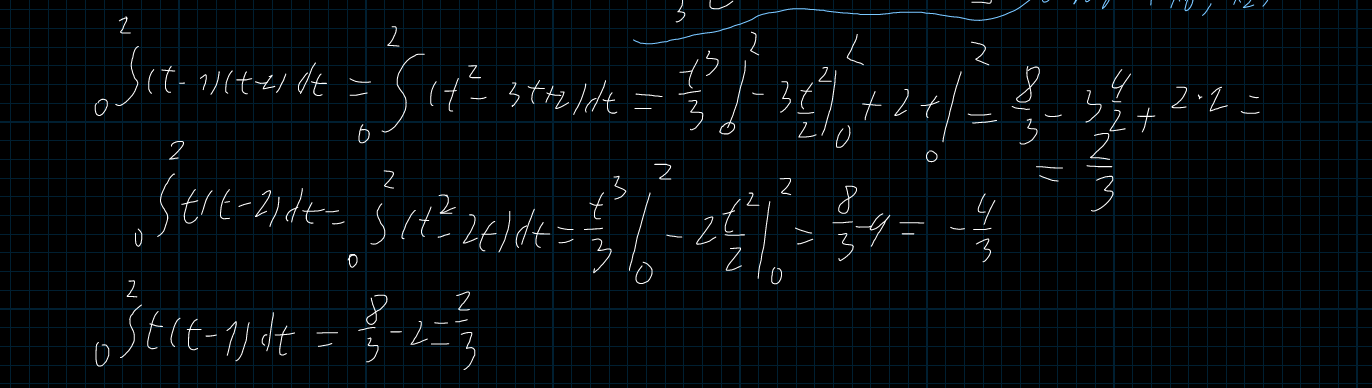 ∫₀² (t-1)(t-2)dt = ∫₀² (t²-3t+2)dt = t³/3|₀² - 3t²/2|₀² + 2t|₀² = 8/3 - 3 4/2 + 2·2 =
= 2/3
∫₀² t(t-2)dt = ∫₀² (t²-2t)dt = t³/3|₀² - 2t²/2|₀² = 8/3-4 = -4/3
∫₀² t(t-1)dt = 8/3-2 = 2/3